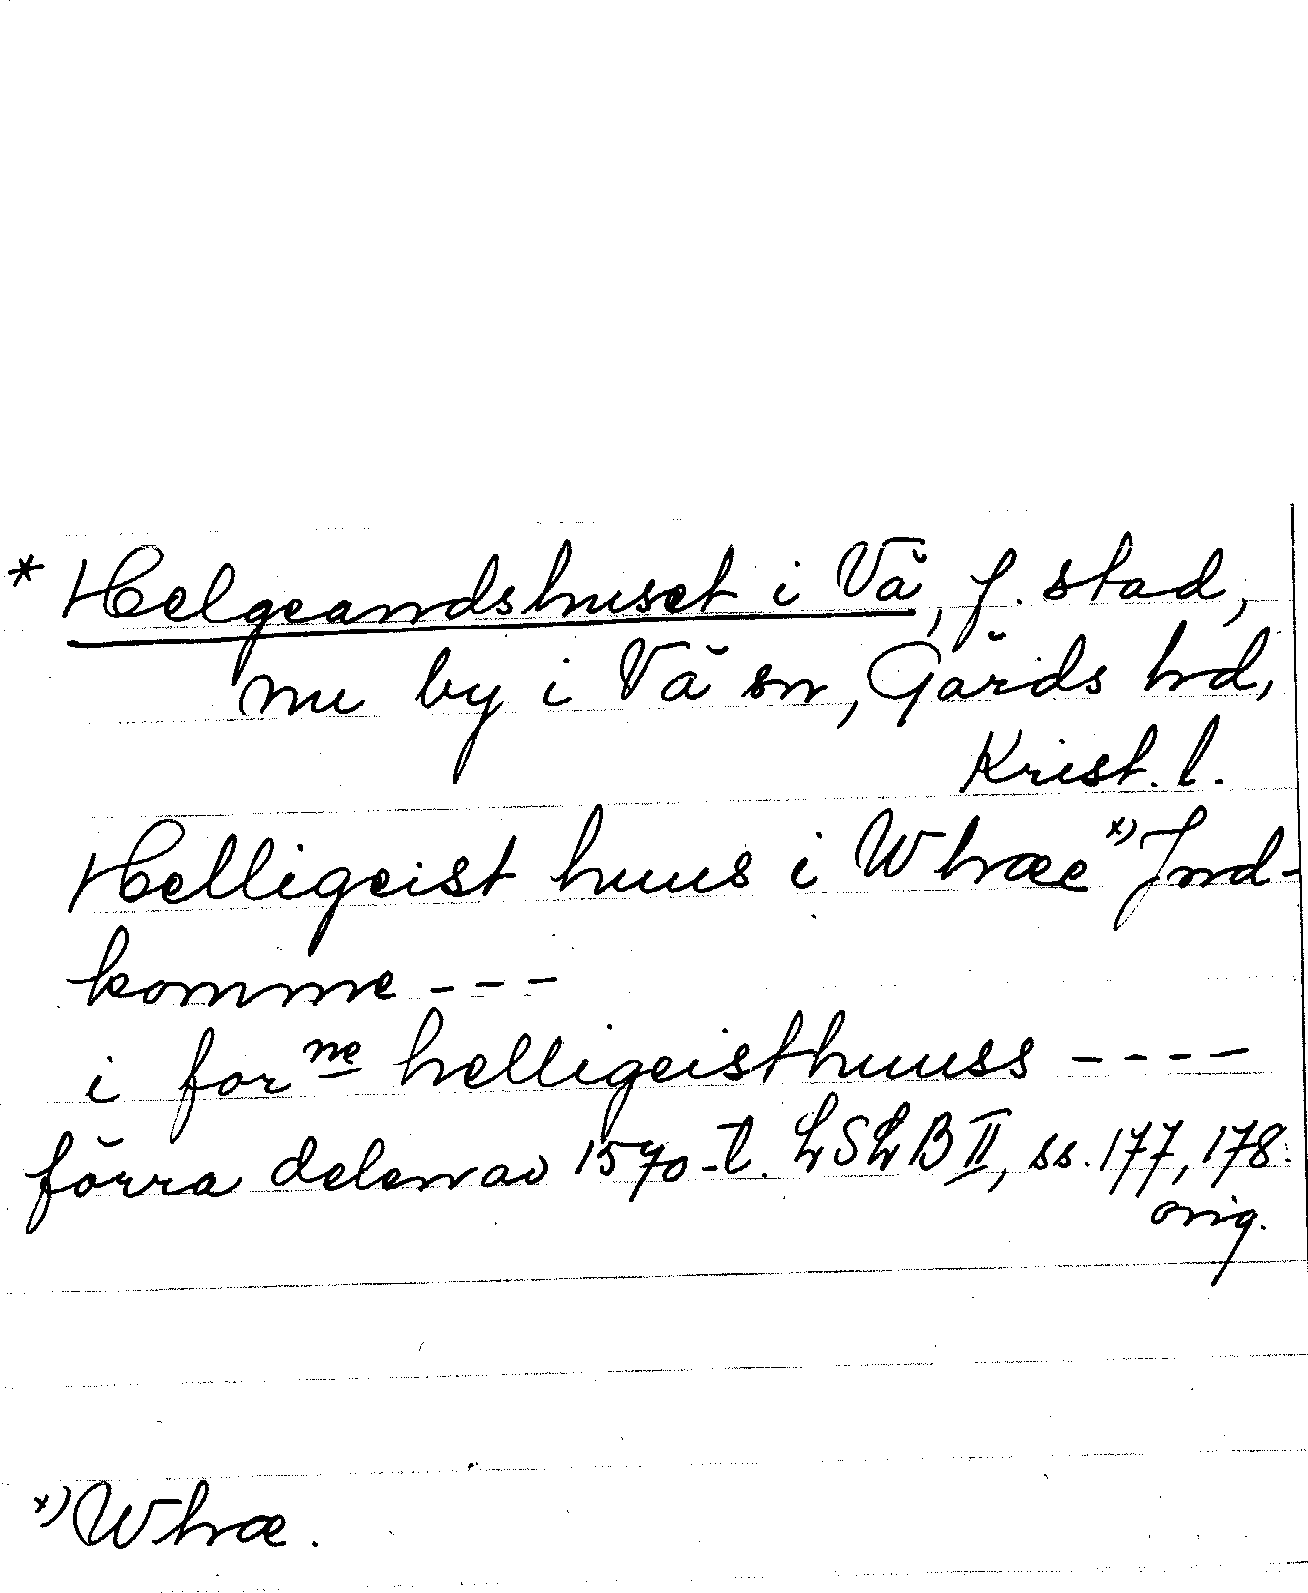 * Helgeandshuset i Vä, f. stad,
nu by i Vä sn, Gärds hd,
Krist. l.
Helligeist huus i Whæe x) Ind-
komme ---
i for ne helligeisthuuss ----
förra delen av 1570-t. LSLB II, ss. 177, 178.
orig.
x) Whæ.